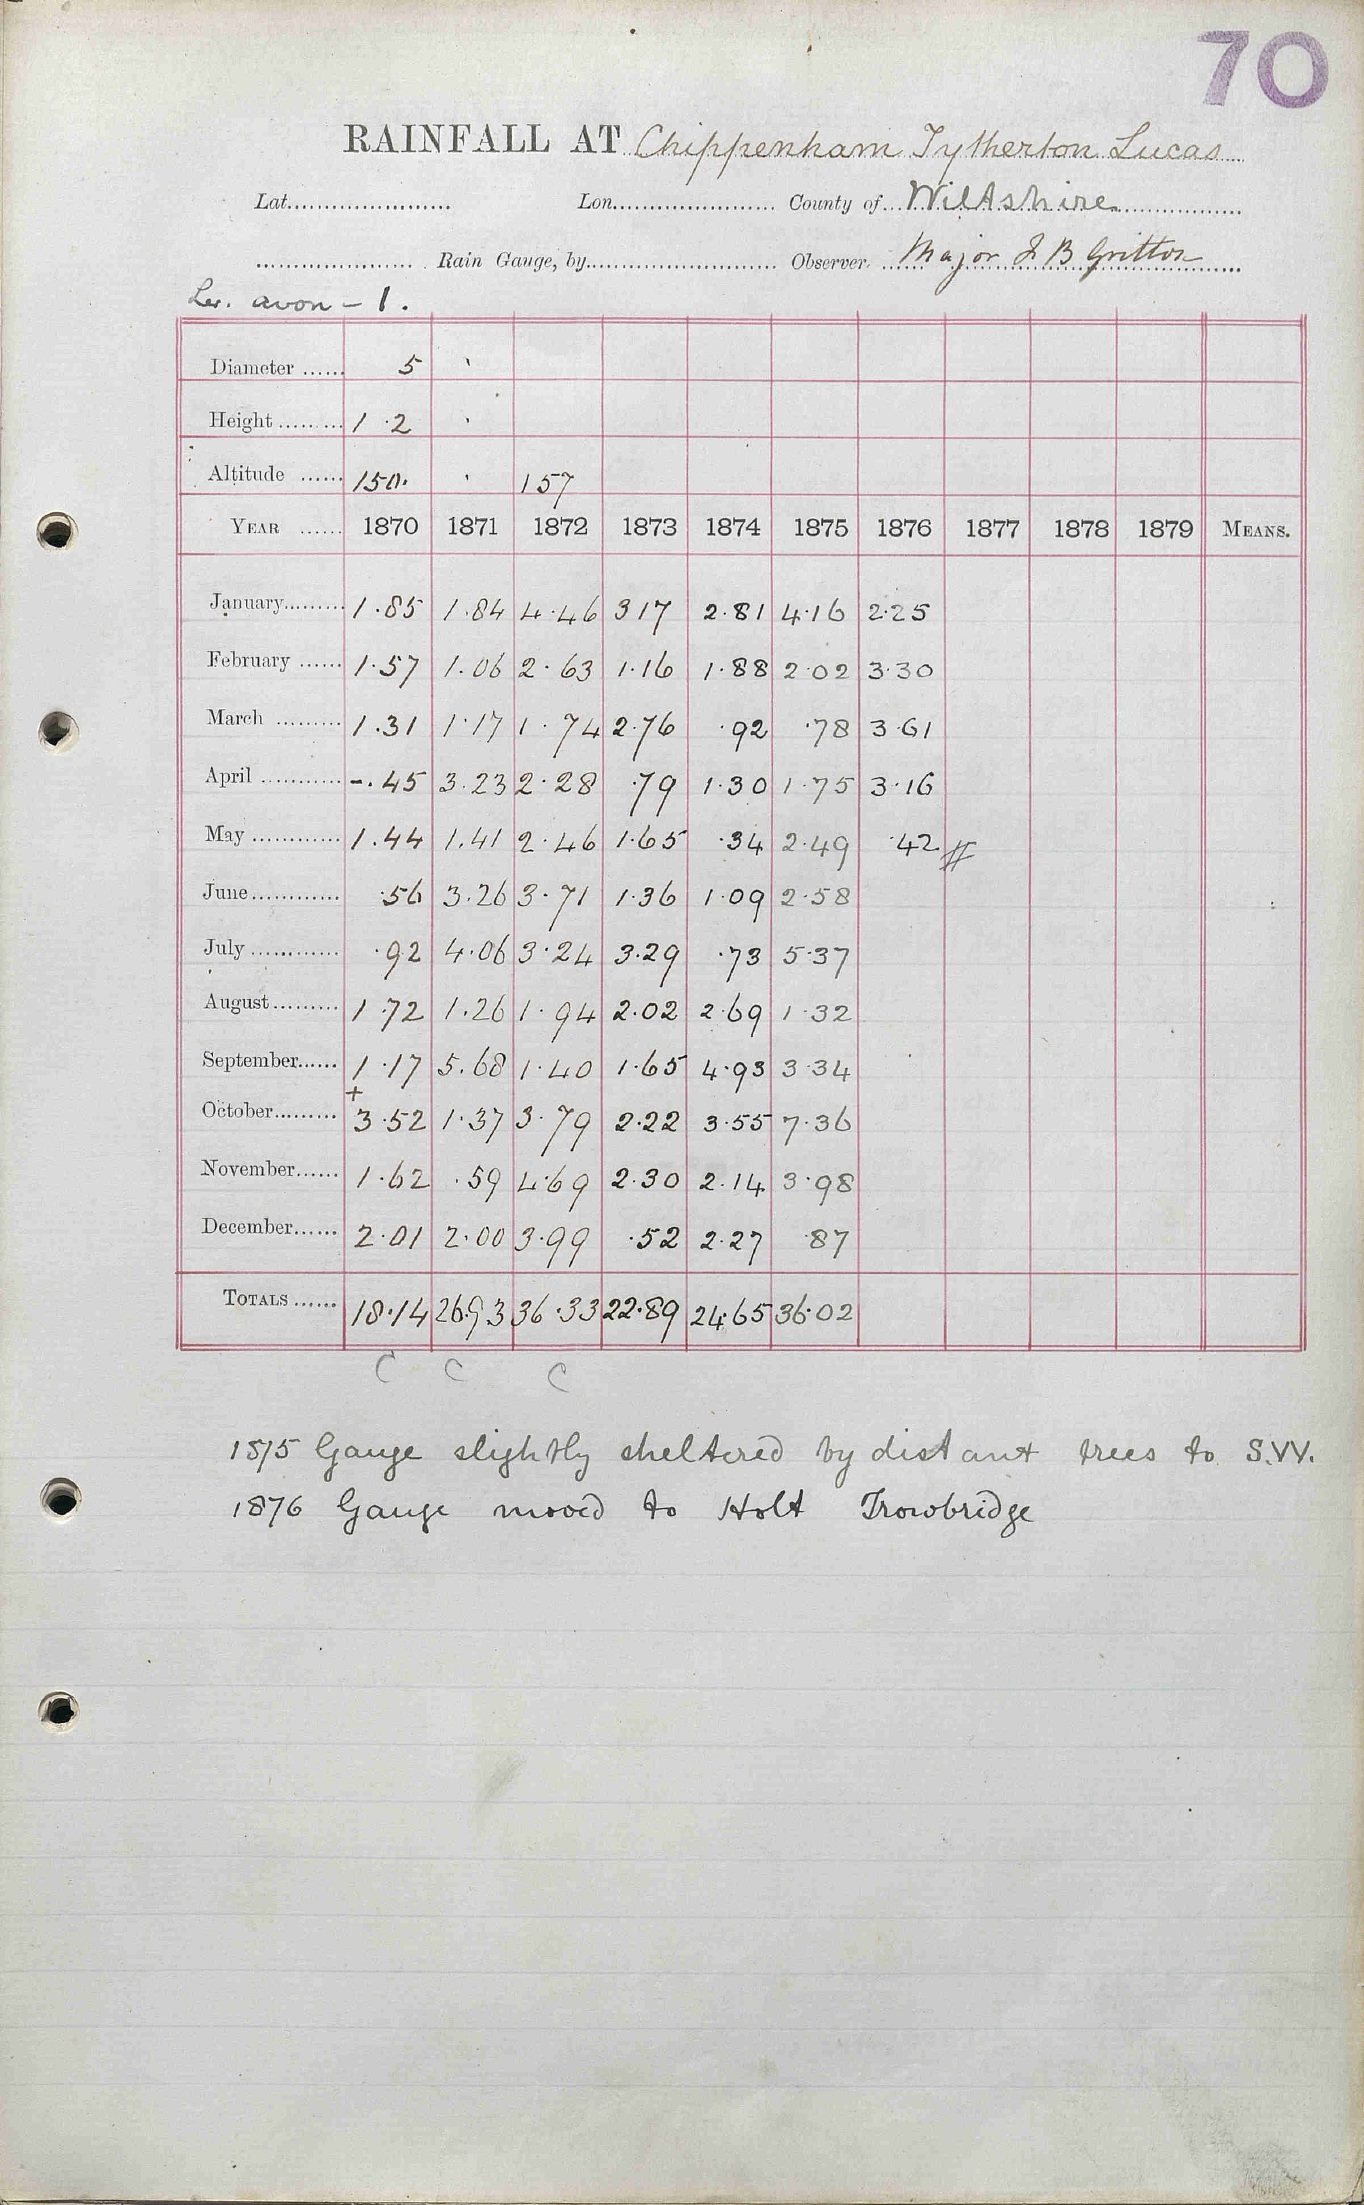 70
RAINFALL AT Chippenham Tytherton Lucas
Lat. Lon. County of Wiltshire
Rain Gauge, by Observer Major J B Gritton
avon - 1.
Diameter 5
Height 1 .2
Altitude 150. 157
YEAR 1870 1871 1872 1873 1874 1875 1876 1877 1878 1879 MEANS.
January 1.85 1.84 4.46 3 17 2.81 4.16 2.25
February 1.57 1.06 2.63 1.16 1.88 2.02 3.30
March 1.31 1.17 1.74 2.76 .92 .78 3.61
April -.45 3.23 2.28 .79 1.30 1.75 3.16
May 1.44 1.41 2.46 1.65 .34 2.49 .42 #
June .56 3.26 3.71 1.36 1.09 2.58
July .92 4.06 3.24 3.29 .73 5.37
August 1.72 1.26 1.94 2.02 2.69 1.32
September 1.17 5.68 1.40 1.65 4.93 3.34
October + 3.52 1.37 3.79 2.22 3.55 7.36
November 1.62 .59 4.69 2.30 2.14 3.98
December 2.01 2.00 3.99 .52 2.27 .87
TOTALS 18.14 26.93 36.33 22.89 24.65 36.02
C C C
1875 Gauge slightly sheltered by distant trees to S.W.
1876 Gauge moved to Holt Trowbridge